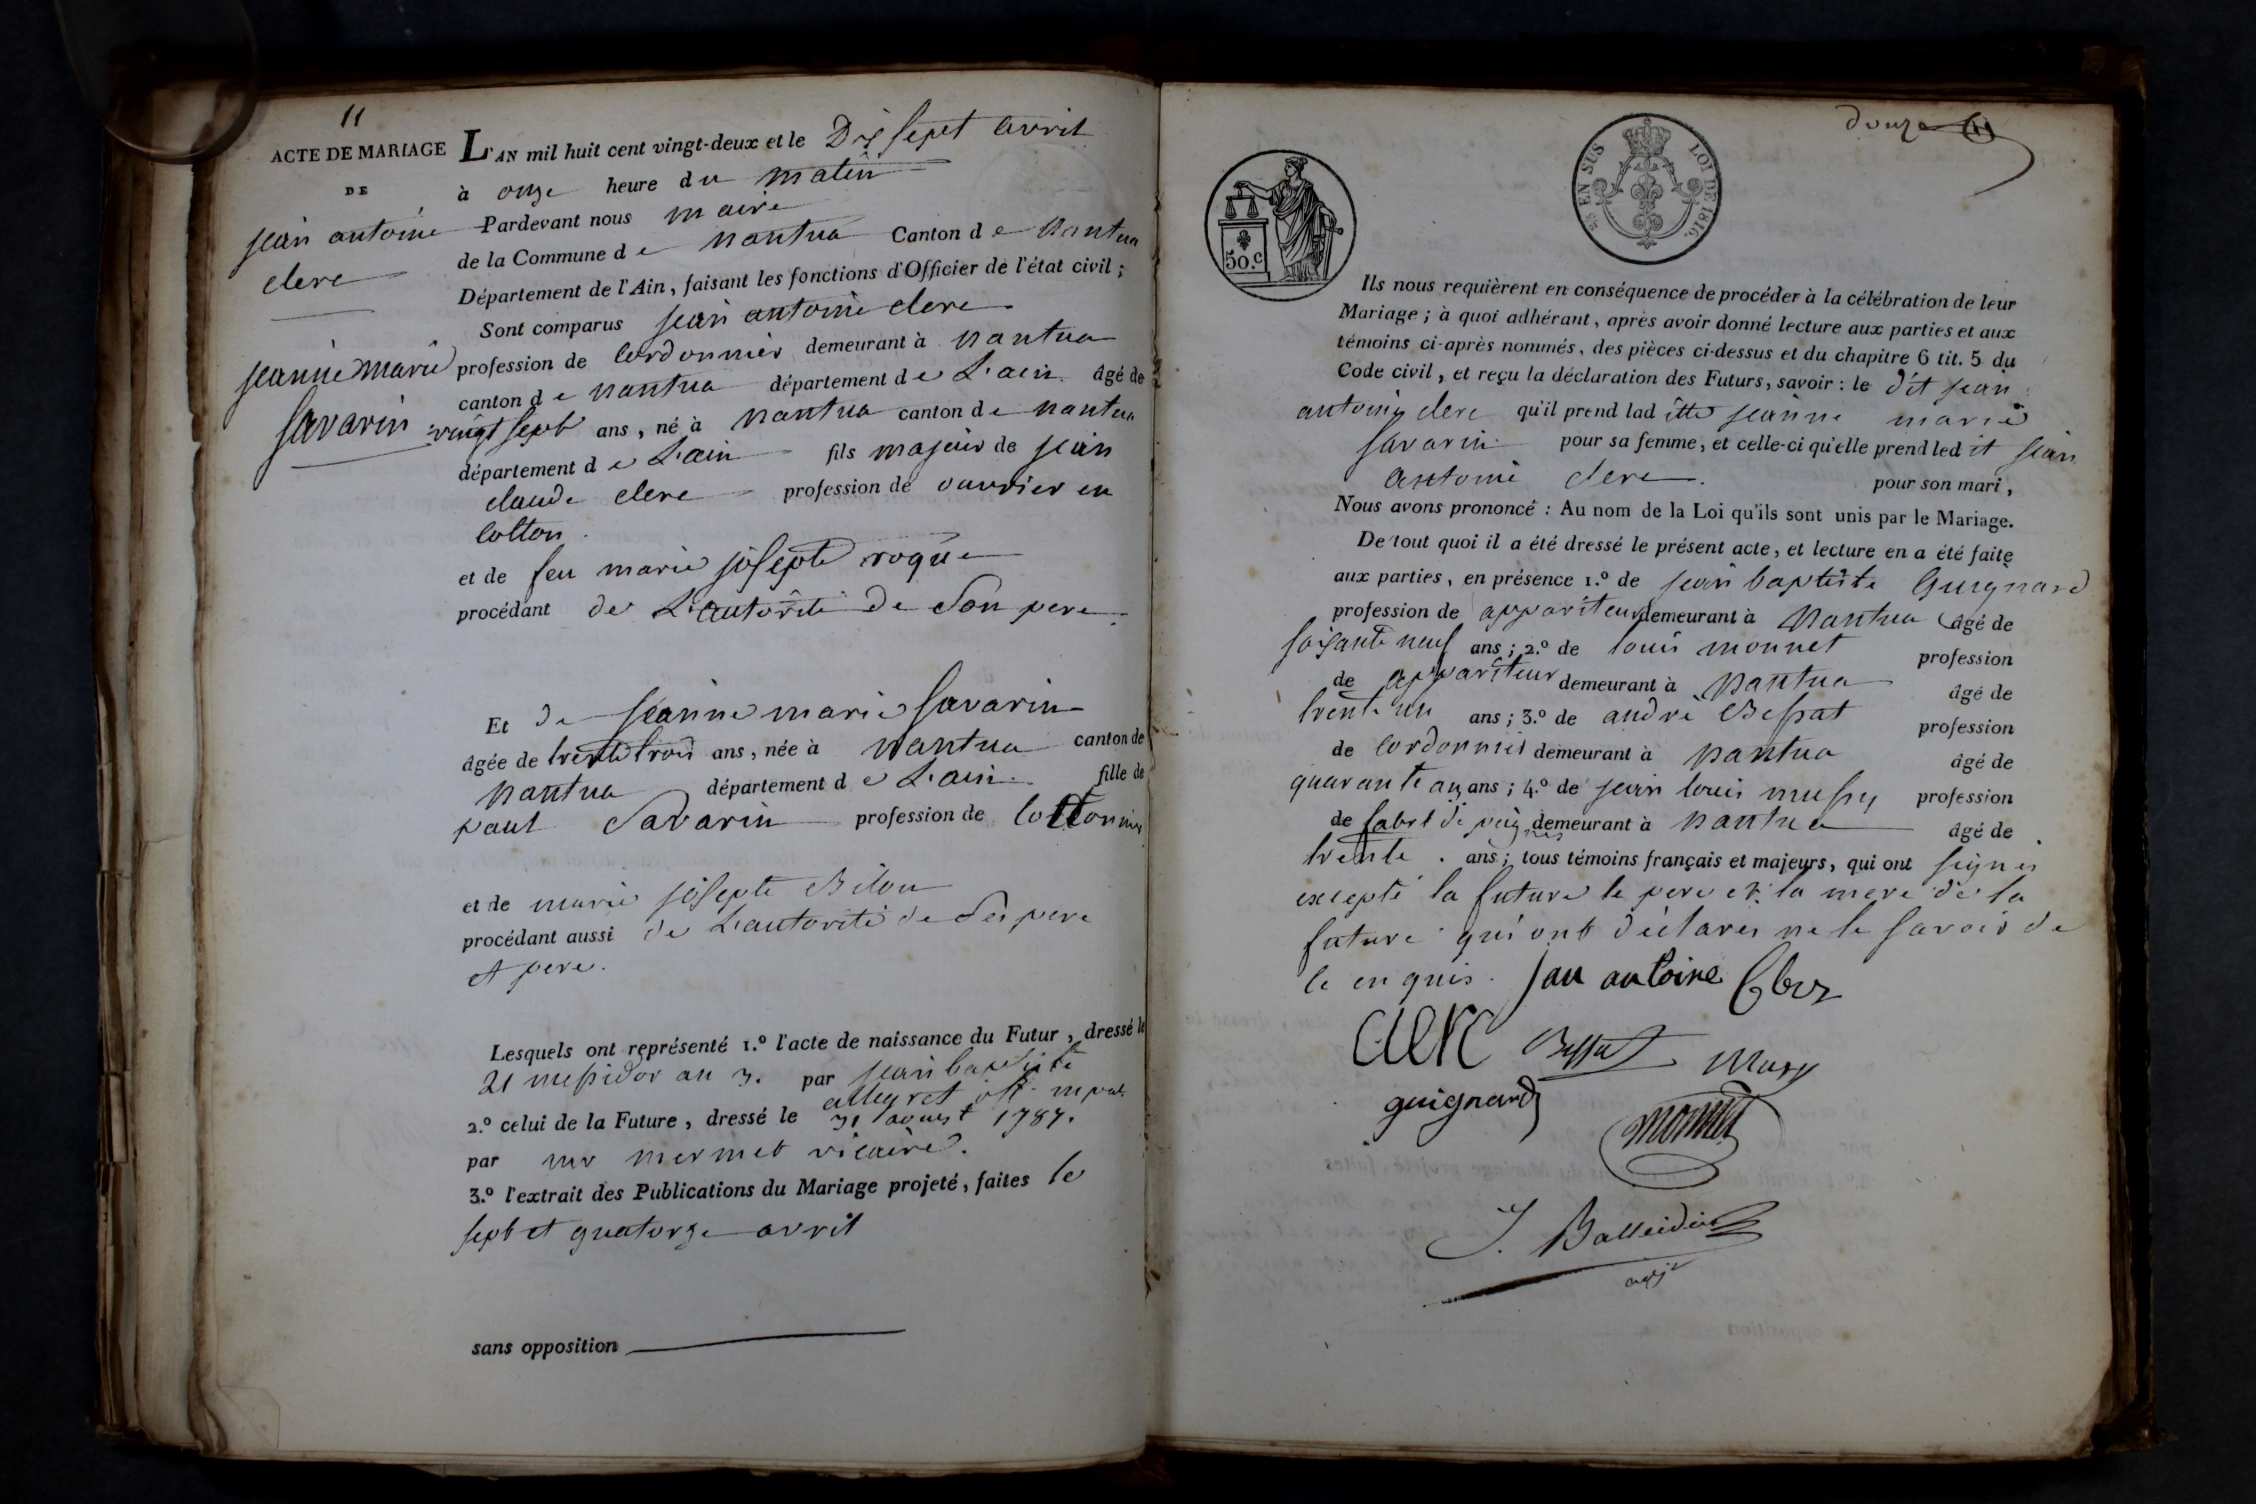 11
ACTE DE MARIAGE
DE
jean antoine
clerc
jeanne marie
Savarin
L'AN mil huit cent vingt-deux et le Dix sept avril
à onze heure du matin
Pardevant nous maire
de la Commune de nantua Canton de nantua
Département de l'Ain, faisant les fonctions d'Officier de l'état civil ;
Sont comparus jean antoine clerc
profession de cordonnier demeurant à nantua
canton de nantua département de L'ain âgé de
vingt sept ans, né à nantua canton de nantua
département de L'ain fils majeur de jean
claude clerc profession de ouvrier en
cotton.
et de feu marie josepte roque
procédant de L'autorité de son pere
Et de jeanne marie Savarin
âgée de trente trois ans, née à nantua canton de
nantua département de L'ain fille de
paul Savarin profession de cottonnier
et de marie josepte
procédant aussi de L'autorité de ses pere
et pere.
Lesquels ont représenté 1.º l'acte de naissance du Futur, dressé le
21 messidor an 3. par jean baptiste
alleyret off.
2.º celui de la Future, dressé le 31 aoust 1787.
par mr mermet vicaire.
3.º l'extrait des Publications du Mariage projeté, faites le
sept et quatorze avril
sans opposition
douze
50.C
EN SUS LOI DE 1816.
Ils nous requièrent en conséquence de procéder à la célébration de leur
Mariage ; à quoi adhérant, après avoir donné lecture aux parties et aux
témoins ci-après nommés, des pièces ci-dessus et du chapitre 6 tit. 5 du
Code civil, et reçu la déclaration des Futurs, savoir : le dit jean
antoine clerc qu'il prend ladite jeanne marie
Savarin pour sa femme, et celle-ci qu'elle prend ledit jean
antoine clerc. pour son mari,
Nous avons prononcé : Au nom de la Loi qu'ils sont unis par le Mariage.
De tout quoi il a été dressé le présent acte, et lecture en a été faite
aux parties, en présence 1.º de jean baptiste Guignard
profession de appariteur demeurant à Nantua âgé de
soisante neuf ans ; 2.º de louis monnet profession
de appariteur demeurant à Nantua âgé de
trente un ans ; 3.º de andré Bessat profession
de cordonnier demeurant à nantua âgé de
quarante ans ; 4.º de jean louis mussy profession
de fabrt de peignes demeurant à nantua âgé de
trente. ans ; tous témoins français et majeurs, qui ont signés
excepté la future le pere et la mere de la
future qui ont déclarés ne le savoir de
ce enquis. jan antoine Clerc
clerc Bessat Musy
guignard
monnet
J. Balleidier
adjt